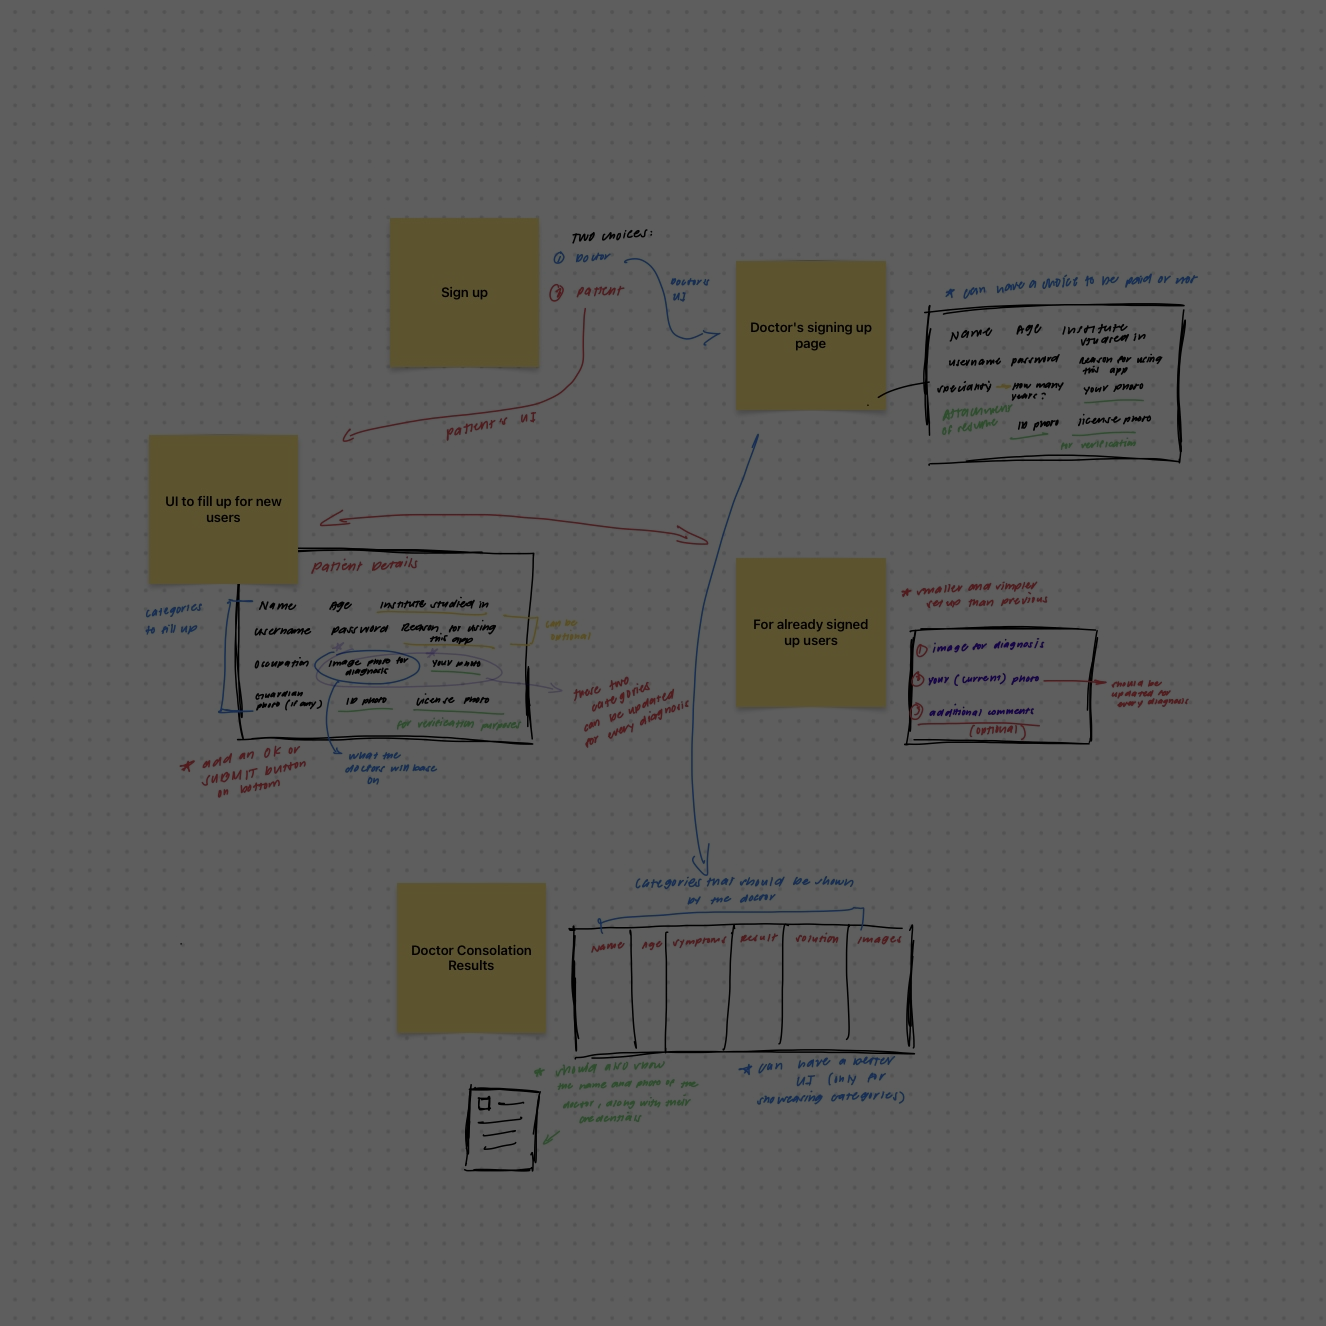 Sign up
TWO choices:
① Doctor
② patient
Doctor's
UI
patient's UI
Doctor's signing up
page
* can have a choice to be paid or not
Name Age Institute
studied in
username password Reason for using
this app
specialty how many
years?
your photo
Attachment
of resume
ID photo license photo
for verification
UI to fill up for new
users
Patient Details
categories
to fill up
Name Age Institute studied in
username password Reason for using
this app
can be
optional
Occupation image photo for
diagnosis
your photo
Guardian
photo (if any)
ID photo license photo
for verification purposes
* add an OK or
SUBMIT button
on bottom
what the
doctors will base
on
these two
categories
can be updated
for every diagnosis
For already signed
up users
* smaller and simpler
setup than previous
① image for diagnosis
② your (current) photo
③ additional comments
(optional)
should be
updated for
every diagnosis
Doctor Consolation
Results
categories that should be shown
by the doctor
Name Age symptoms Result solution images
* should also show
the name and photo of the
doctor, along with their
credentials
* can have a better
UI (only for
showcasing categories)